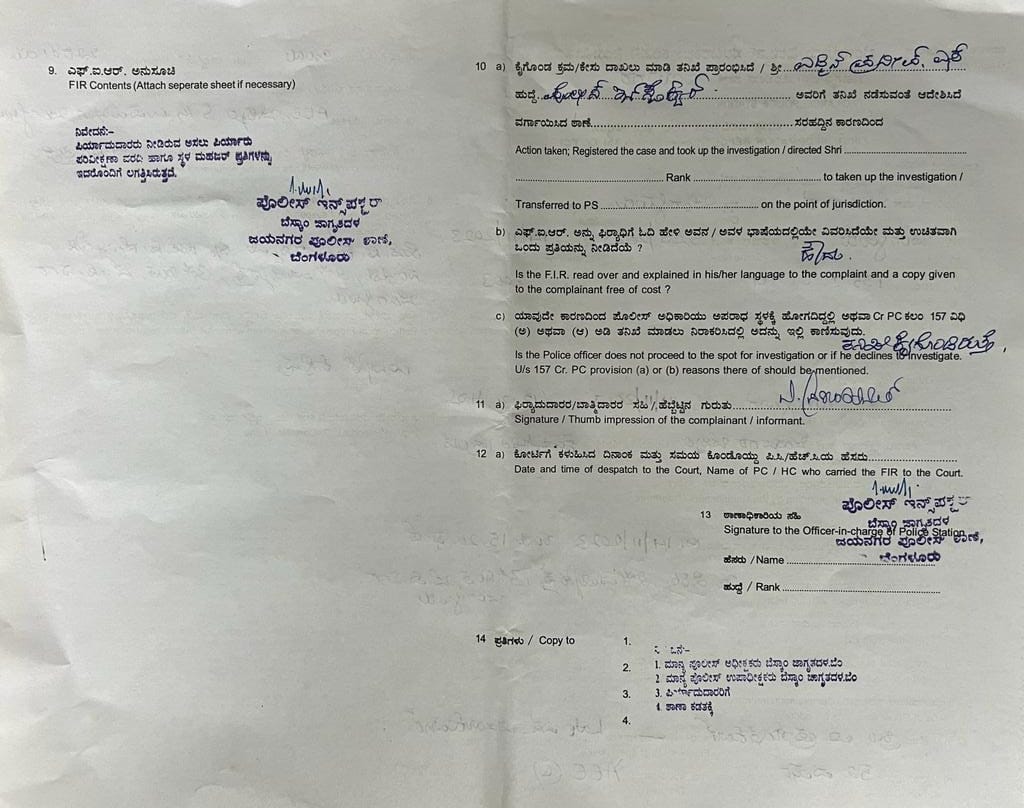 9. ಎಫ್.ಐ.ಆರ್. ಅನುಸೂಚಿ
FIR Contents (Attach seperate sheet if necessary)
ನಿವೇದನೆ:-
ಪಿರ್ಯಾದುದಾರರು ನೀಡಿರುವ ಅಸಲು ಪಿರ್ಯಾದು
ಪರಿವೀಕ್ಷಣಾ ವರದಿ ಹಾಗೂ ಸ್ಥಳ ಮಹಜರ್ ಪ್ರತಿಗಳನ್ನು
ಇದರೊಂದಿಗೆ ಲಗತ್ತಿಸಿರುತ್ತದೆ.
ಪೊಲೀಸ್ ಇನ್ಸ್‌ಪೆಕ್ಟರ್
ಬೆಸ್ಕಾಂ ಜಾಗೃತದಳ
ಜಯನಗರ ಪೊಲೀಸ್ ಠಾಣೆ,
ಬೆಂಗಳೂರು
10 a) ಕೈಗೊಂಡ ಕ್ರಮ/ಕೇಸು ದಾಖಲು ಮಾಡಿ ತನಿಖೆ ಪ್ರಾರಂಭಿಸಿದೆ / ಶ್ರೀ
ಹುದ್ದೆ ಪೊಲೀಸ್ ಇನ್ಸ್‌ಪೆಕ್ಟರ್ ಅವರಿಗೆ ತನಿಖೆ ನಡೆಸುವಂತೆ ಆದೇಶಿಸಿದೆ
ವರ್ಗಾಯಿಸಿದ ಠಾಣೆ ಸರಹದ್ದಿನ ಕಾರಣದಿಂದ
Action taken; Registered the case and took up the investigation / directed Shri
Rank to taken up the investigation /
Transferred to PS on the point of jurisdiction.
b) ಎಫ್.ಐ.ಆರ್. ಅನ್ನು ಫಿರ್‍ಯಾಧಿಗೆ ಓದಿ ಹೇಳಿ ಅವನ / ಅವಳ ಭಾಷೆಯದಲ್ಲಿಯೇ ವಿವರಿಸಿದೆಯೇ ಮತ್ತು ಉಚಿತವಾಗಿ
ಒಂದು ಪ್ರತಿಯನ್ನು ನೀಡಿದೆಯೆ ? ಹೌದು.
Is the F.I.R. read over and explained in his/her language to the complaint and a copy given
to the complainant free of cost ?
c) ಯಾವುದೇ ಕಾರಣದಿಂದ ಪೊಲೀಸ್ ಅಧಿಕಾರಿಯು ಅಪರಾಧ ಸ್ಥಳಕ್ಕೆ ಹೋಗದಿದ್ದಲ್ಲಿ ಅಥವಾ Cr PC ಕಲಂ 157 ವಿಧಿ
(ಅ) ಅಥವಾ (ಆ) ಅಡಿ ತನಿಖೆ ಮಾಡಲು ನಿರಾಕರಿಸಿದಲ್ಲಿ ಅದನ್ನು ಇಲ್ಲಿ ಕಾಣಿಸುವುದು.
Is the Police officer does not proceed to the spot for investigation or if he declines to investigate.
U/s 157 Cr. PC provision (a) or (b) reasons there of should be mentioned.
11 a) ಫಿರ್‍ಯಾದುದಾರರ/ಬಾತ್ಮಿದಾರರ ಸಹಿ / ಹೆಬ್ಬೆಟ್ಟಿನ ಗುರುತು
Signature / Thumb impression of the complainant / informant.
12 a) ಕೋರ್ಟಿಗೆ ಕಳುಹಿಸಿದ ದಿನಾಂಕ ಮತ್ತು ಸಮಯ ಕೊಂಡೊಯ್ದ ಪಿ.ಸಿ./ಹೆಚ್.ಸಿ.ಯ ಹೆಸರು
Date and time of despatch to the Court, Name of PC / HC who carried the FIR to the Court.
ಪೊಲೀಸ್ ಇನ್ಸ್‌ಪೆಕ್ಟರ್
13 ಠಾಣಾಧಿಕಾರಿಯ ಸಹಿ
ಬೆಸ್ಕಾಂ ಜಾಗೃತದಳ
Signature to the Officer-in-charge of Police Station
ಜಯನಗರ ಪೊಲೀಸ್ ಠಾಣೆ,
ಬೆಂಗಳೂರು
ಹೆಸರು / Name
ಹುದ್ದೆ / Rank
14 ಪ್ರತಿಗಳು / Copy to 1.
2.
3.
4.
1. ಮಾನ್ಯ ಪೊಲೀಸ್ ಅಧೀಕ್ಷಕರು ಬೆಸ್ಕಾಂ ಜಾಗೃತದಳ.ಬೆಂ
2 ಮಾನ್ಯ ಪೊಲೀಸ್ ಉಪಾಧೀಕ್ಷಕರು ಬೆಸ್ಕಾಂ ಜಾಗೃತದಳ.ಬೆಂ
3. ಪಿರ್ಯಾದುದಾರರಿಗೆ
4. ಠಾಣಾ ಕಡತಕ್ಕೆ